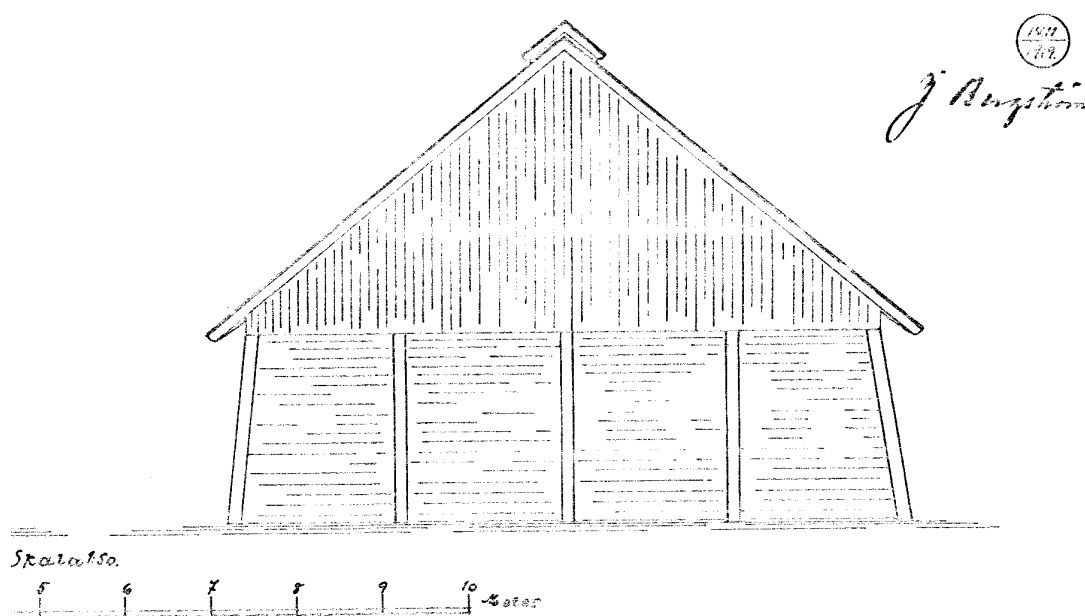 J Bergström
Skala 1:50.
5 6 7 8 9 10 Meter